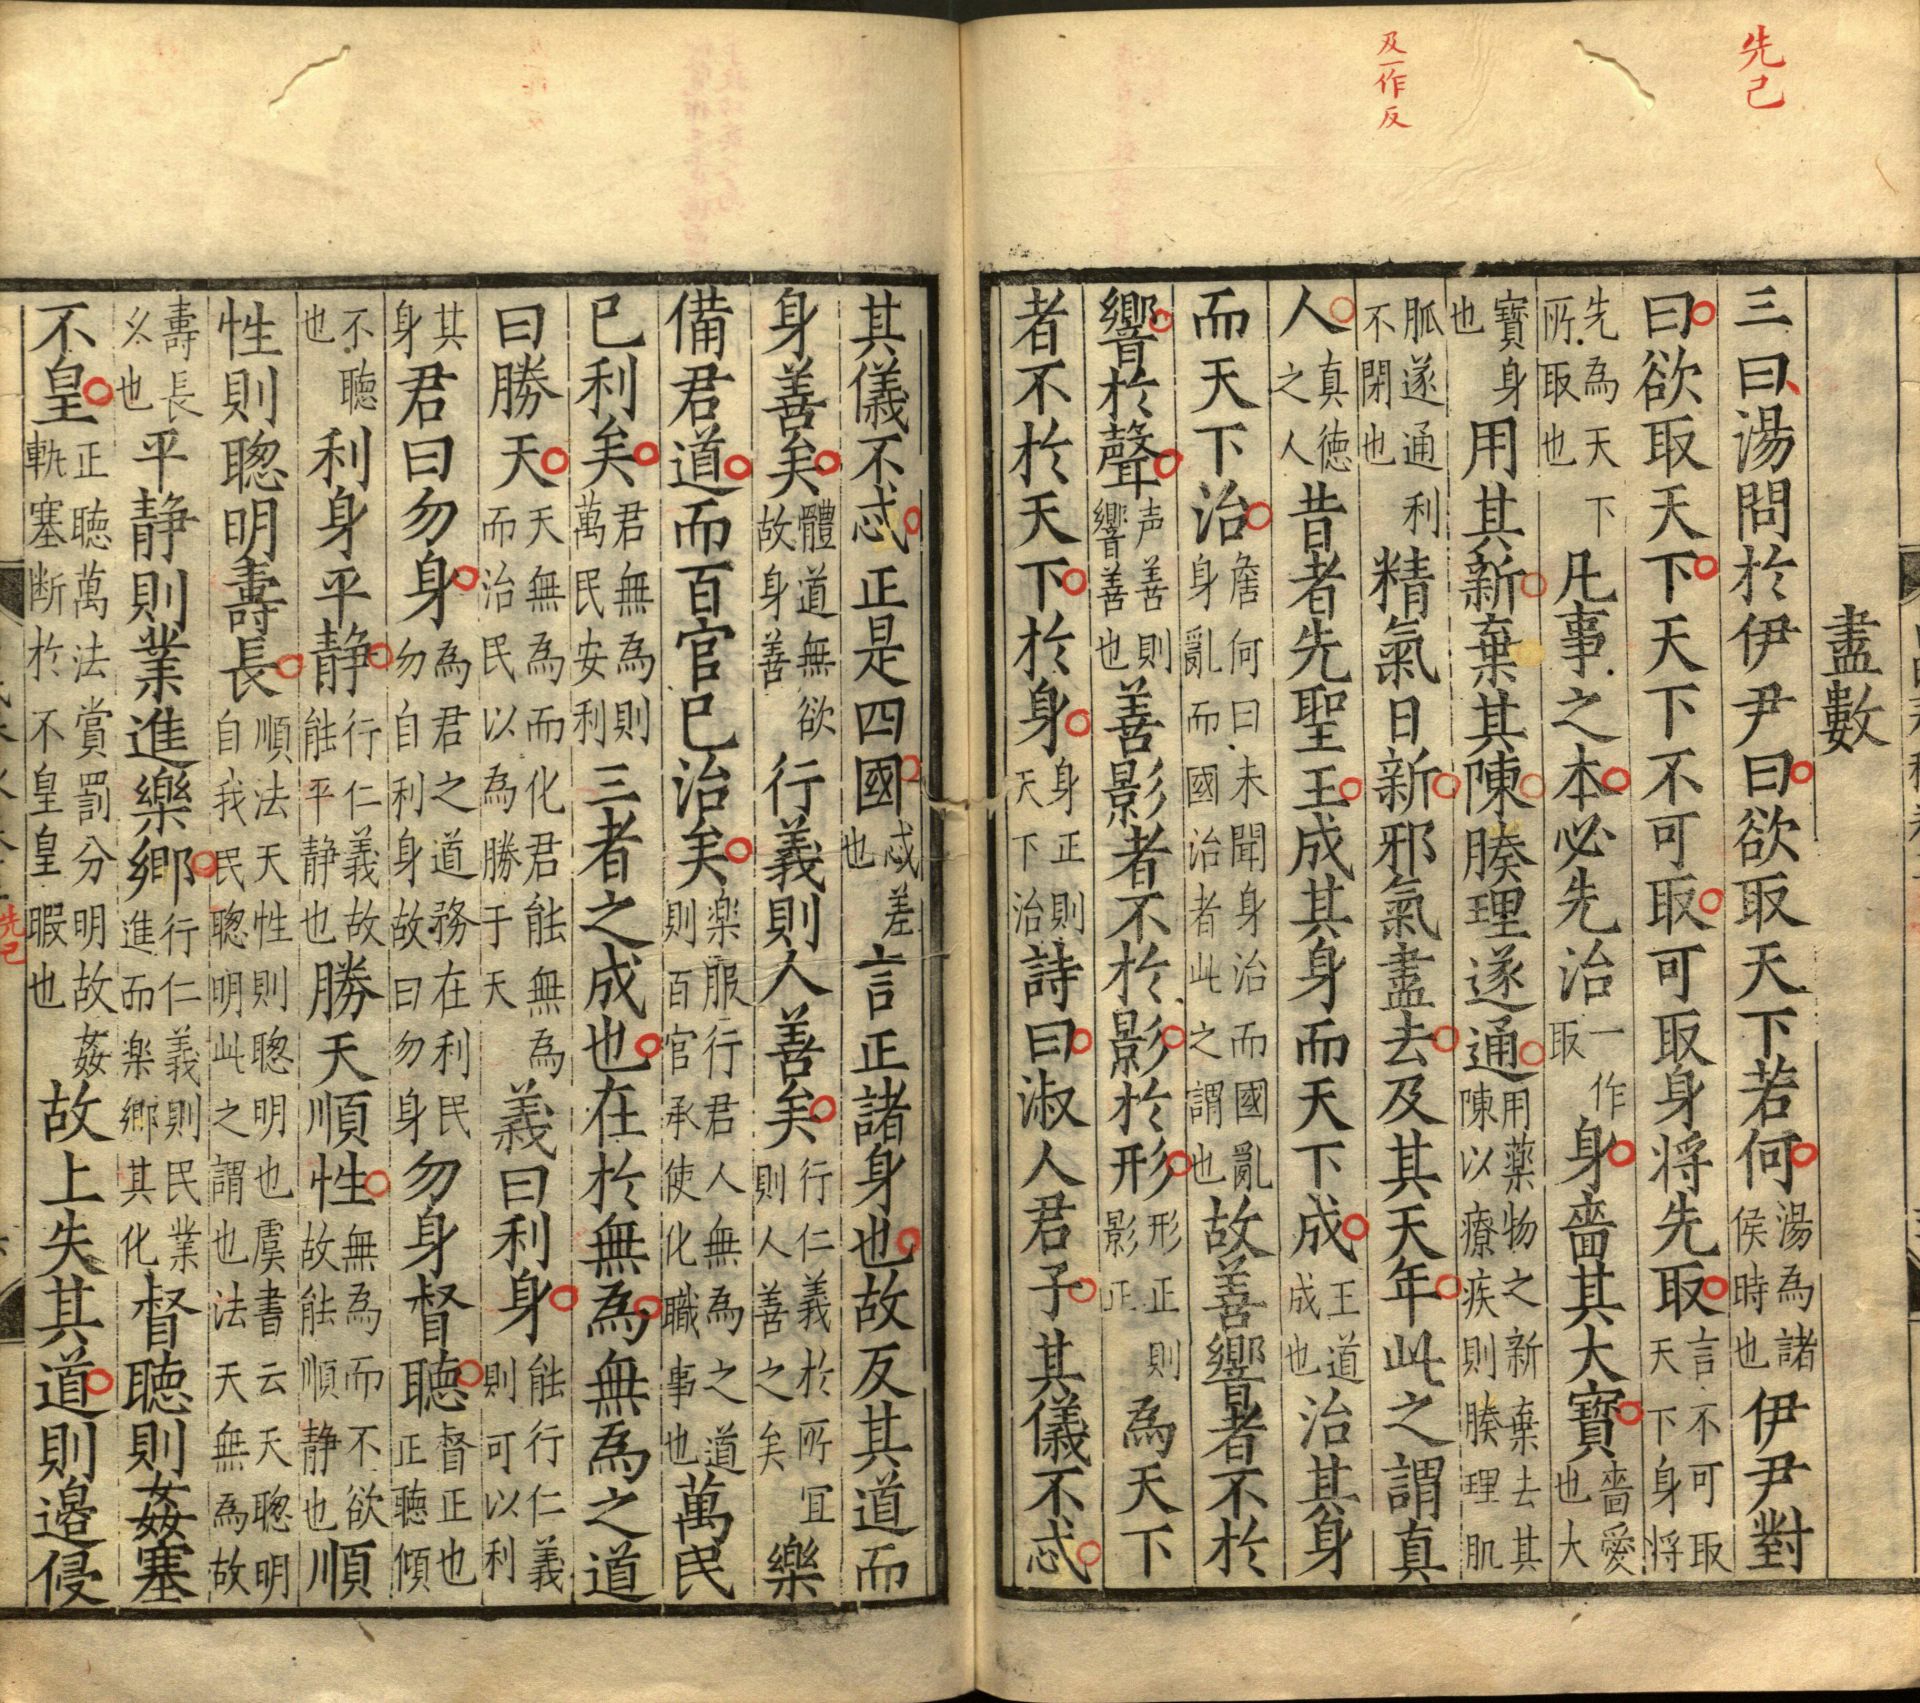 先己
及一作反
盡數
三曰湯問於伊尹曰欲取天下若何湯為諸侯時也伊尹對
曰欲取天下天下不可取可取身將先取言不可取天下身將
先為天下所取也凡事之本必先治一作取身嗇其大寶嗇愛也大
寶身也用其新棄其陳腠理遂通用藥物之新棄去其陳以療疾則腠理肌
胍遂通利不閉也精氣日新邪氣盡去及其天年此之謂真
人真德之人昔者先聖王成其身而天下成王道成也治其身
而天下治詹何曰未聞身治而國亂身亂而國治者此之謂也故善響者不於
響於聲声善則響善也善影者不於影於形形正則影正為天下
者不於天下於身身正則天下治詩曰淑人君子其儀不忒
其儀不忒正是四國忒差也言正諸身也故反其道而
身善矣體道無欲故身善行義則人善矣行仁義於所宜則人善之矣樂
備君道而百官已治矣楽服行君人無為之道則百官承使化職事也萬民
已利矣君無為則萬民安利三者之成也在於無為無為之道
曰勝天天無為而化君能無為而治民以為勝于天義曰利身能行仁義則可以利
其身君曰勿身為君之道務在利民勿自利身故曰勿身勿身督聽督正也正聽傾
不聽也利身平静行仁義故能平静也勝天順性無為而不欲故能順静也順
性則聰明壽長順法天性則聰明也虞書云天聰明自我民聰明此之謂也法天無為故
壽長久也平静則業進樂鄉行仁義則民業進而楽鄉其化督聽則姦塞
不皇正聽萬法賞罰分明故姦軌塞断於不皇皇暇也故上失其道則邉侵
先己